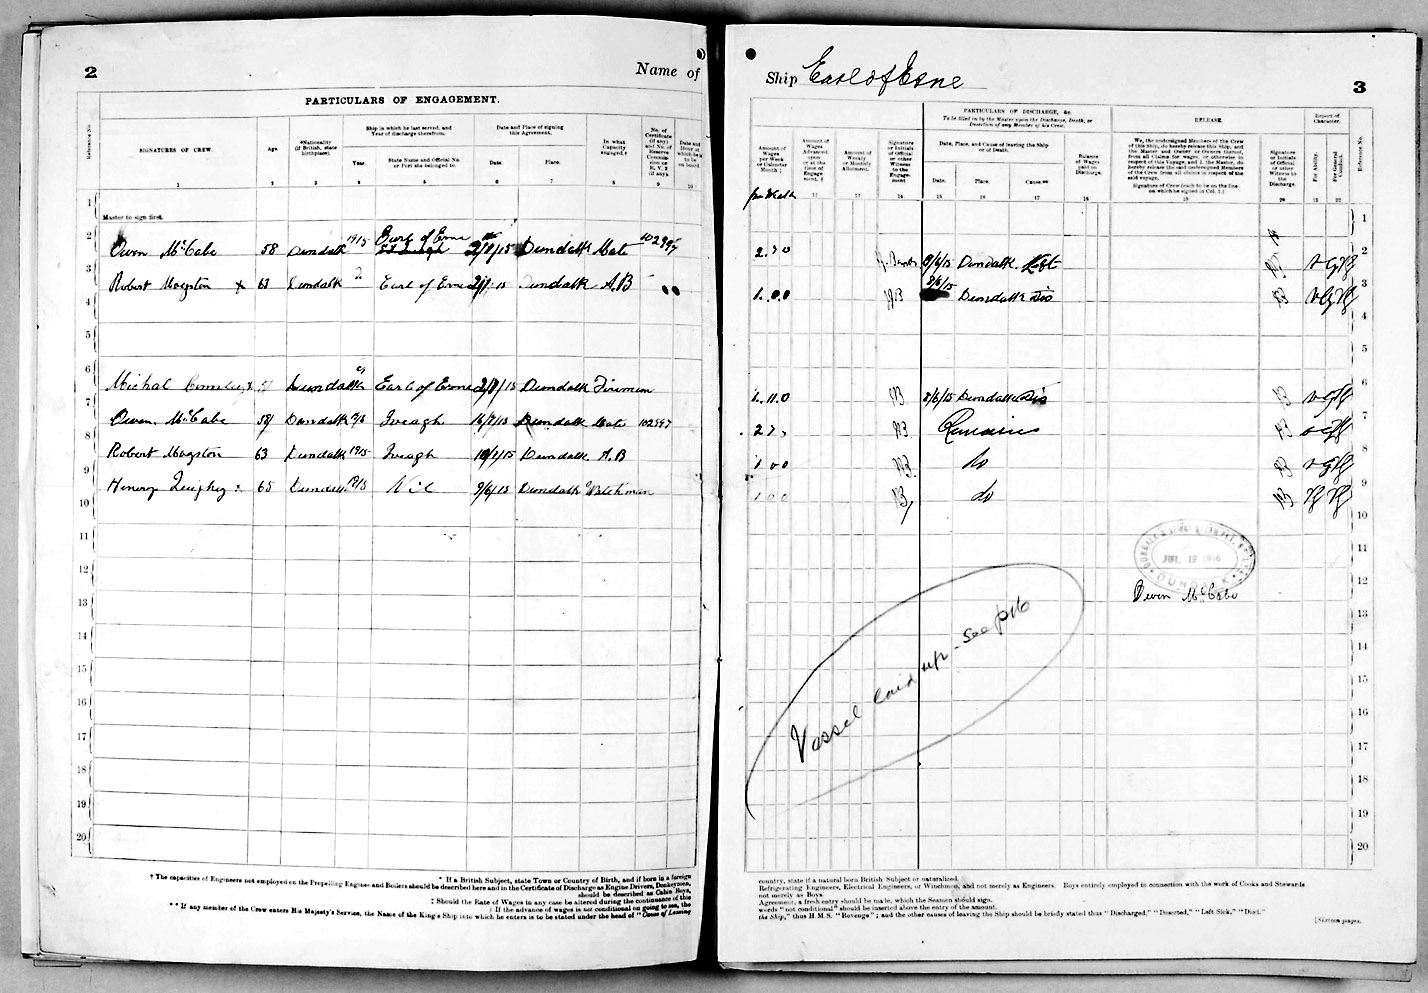 2
Name of
PARTICULARS OF ENGAGEMENT.
Reference No.
SIGNATURES OF CREW.
Age.
*Nationality (if British, state birthplace).
Ship in which he last served, and Year of discharge therefrom.
Year.
State Name and Official No. or Port she belonged to.
Date and Place of signing this Agreement.
Date.
Place.
In what Capacity engaged.†
No. of Certificate (if any) and No. of Reserve Commission or R.V.2 (if any).
Date and Hour at which he is to be on board
1 2 3 4 5 6 7 8 9 10
1 Master to sign first.
2 Owen McCabe 58 Dundalk 1915 Earl of Erne 2/1/15 Dundalk Mate 102997
3 Robert Mogston x 63 Dundalk Earl of Erne 2/1/15 Dundalk A.B
4
5
6 Michal x Dundalk Earl of Erne 2/1/15 Dundalk Fireman
7 Owen McCabe 58 Dundalk Iveagh Dundalk Mate 102997
8 Robert Mogston 63 Dundalk 1915 Iveagh Dundalk A.B
9 Henery x 65 Dundalk Nil 9/6/15 Dundalk Watchman
10
11
12
13
14
15
16
17
18
19
20
* If a British Subject, state Town or Country of Birth, and if born in a foreign
† The capacities of Engineers not employed on the Propelling Engines and Boilers should be described here and in the Certificate of Discharge as Engine Drivers, Donkeymen,
should be described as Cabin Boys,
‡ Should the Rate of Wages in any case be altered during the continuance of this
‖ If the advance of wages is not conditional on going to sea, the
** If any member of the Crew enters His Majesty's Service, the Name of the King's Ship into which he enters is to be stated under the head of "Cause of Leaving
Ship Earl of Erne
3
Amount of Wages per Week or Calendar Month ‡
Amount of Wages Advanced upon at the time of Engagement. ‖
Amount of Weekly or Monthly Allotment.
Signature or Initials of Official or other Witness to the Engagement
PARTICULARS OF DISCHARGE, &c.
To be filled in by the Master upon the Discharge, Death, or Desertion of any Member of his Crew.
Date, Place, and Cause of leaving the Ship or of Death.
Date.
Place.
Cause.**
Balance of Wages paid on Discharge.
RELEASE.
We, the undersigned Members of the Crew of this Ship, do hereby release this Ship, and the Master and Owner or Owners thereof, from all Claims for wages, or otherwise in respect of this Voyage, and I, the Master, do hereby release the said undersigned Members of the Crew from all claims in respect of the said voyage.
Signature of Crew (each to be on the line on which he signed in Col. 1.)
Signature or Initials of Official or other Witness to the Discharge.
Report of Character.
For Ability.
For General Conduct.
Reference No.
12 13 14 15 16 17 18 19 20 21 22
per Week
1
2 2.7.0 Dundalk
3 1.0.0 8/6/15 Dundalk Dis
4
5
6 1.11.0 8/6/15 Dundalk Dis
7 Remains
8 1 0 0 do
9 1 0 0 do
10
11
JUL 19 1916
DUNDALK
12 Owen McCabe
13
14
Vessel laid up - See p16
15
16
17
18
19
20
country, state if a natural born British Subject or naturalized.
Refrigerating Engineers, Electrical Engineers, or Winchmen, and not merely as Engineers. Boys entirely employed in connection with the work of Cooks and Stewards
not merely as Boys.
Agreement, a fresh entry should be made, which the Seamen should sign.
words "not conditional" should be inserted above the entry of the amount.
the Ship," thus H.M.S. "Revenge"; and the other causes of leaving the Ship should be briefly stated thus "Discharged," "Deserted," "Left Sick," "Died."
[Sixteen pages.